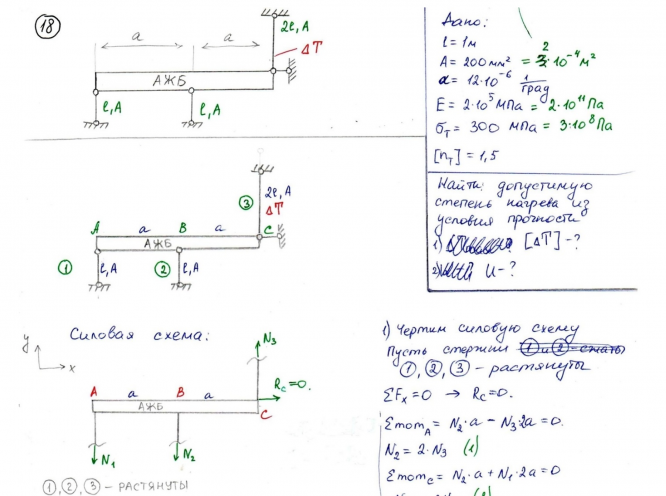 18
2l, A
ΔT
a
a
АЖБ
l, A
l, A
Дано:
l = 1м
A = 200 мм² = 2·10⁻⁴ м²
α = 12·10⁻⁶ 1/град
E = 2·10⁵ МПа = 2·10¹¹ Па
σт = 300 МПа = 3·10⁸ Па
[nт] = 1,5
Найти: допустимую
степень нагрева из
условия прочности
1) [ΔT] - ?
2) и - ?
3
2l, A
ΔT
A
a
B
a
C
АЖБ
1
l, A
2
l, A
Силовая схема:
y
x
N₃
Rc = 0.
A
a
B
a
C
АЖБ
N₁
N₂
1, 2, 3 - РАСТЯНУТЫ
1) Чертим силовую схему
Пусть стержни 1 и 2 - сжаты
1, 2, 3 - растянуты
ΣFx = 0 → Rc = 0.
ΣmomA = N₂·a - N₃·2a = 0.
N₂ = 2·N₃ (1)
Σmomc = N₂·a + N₁·2a = 0